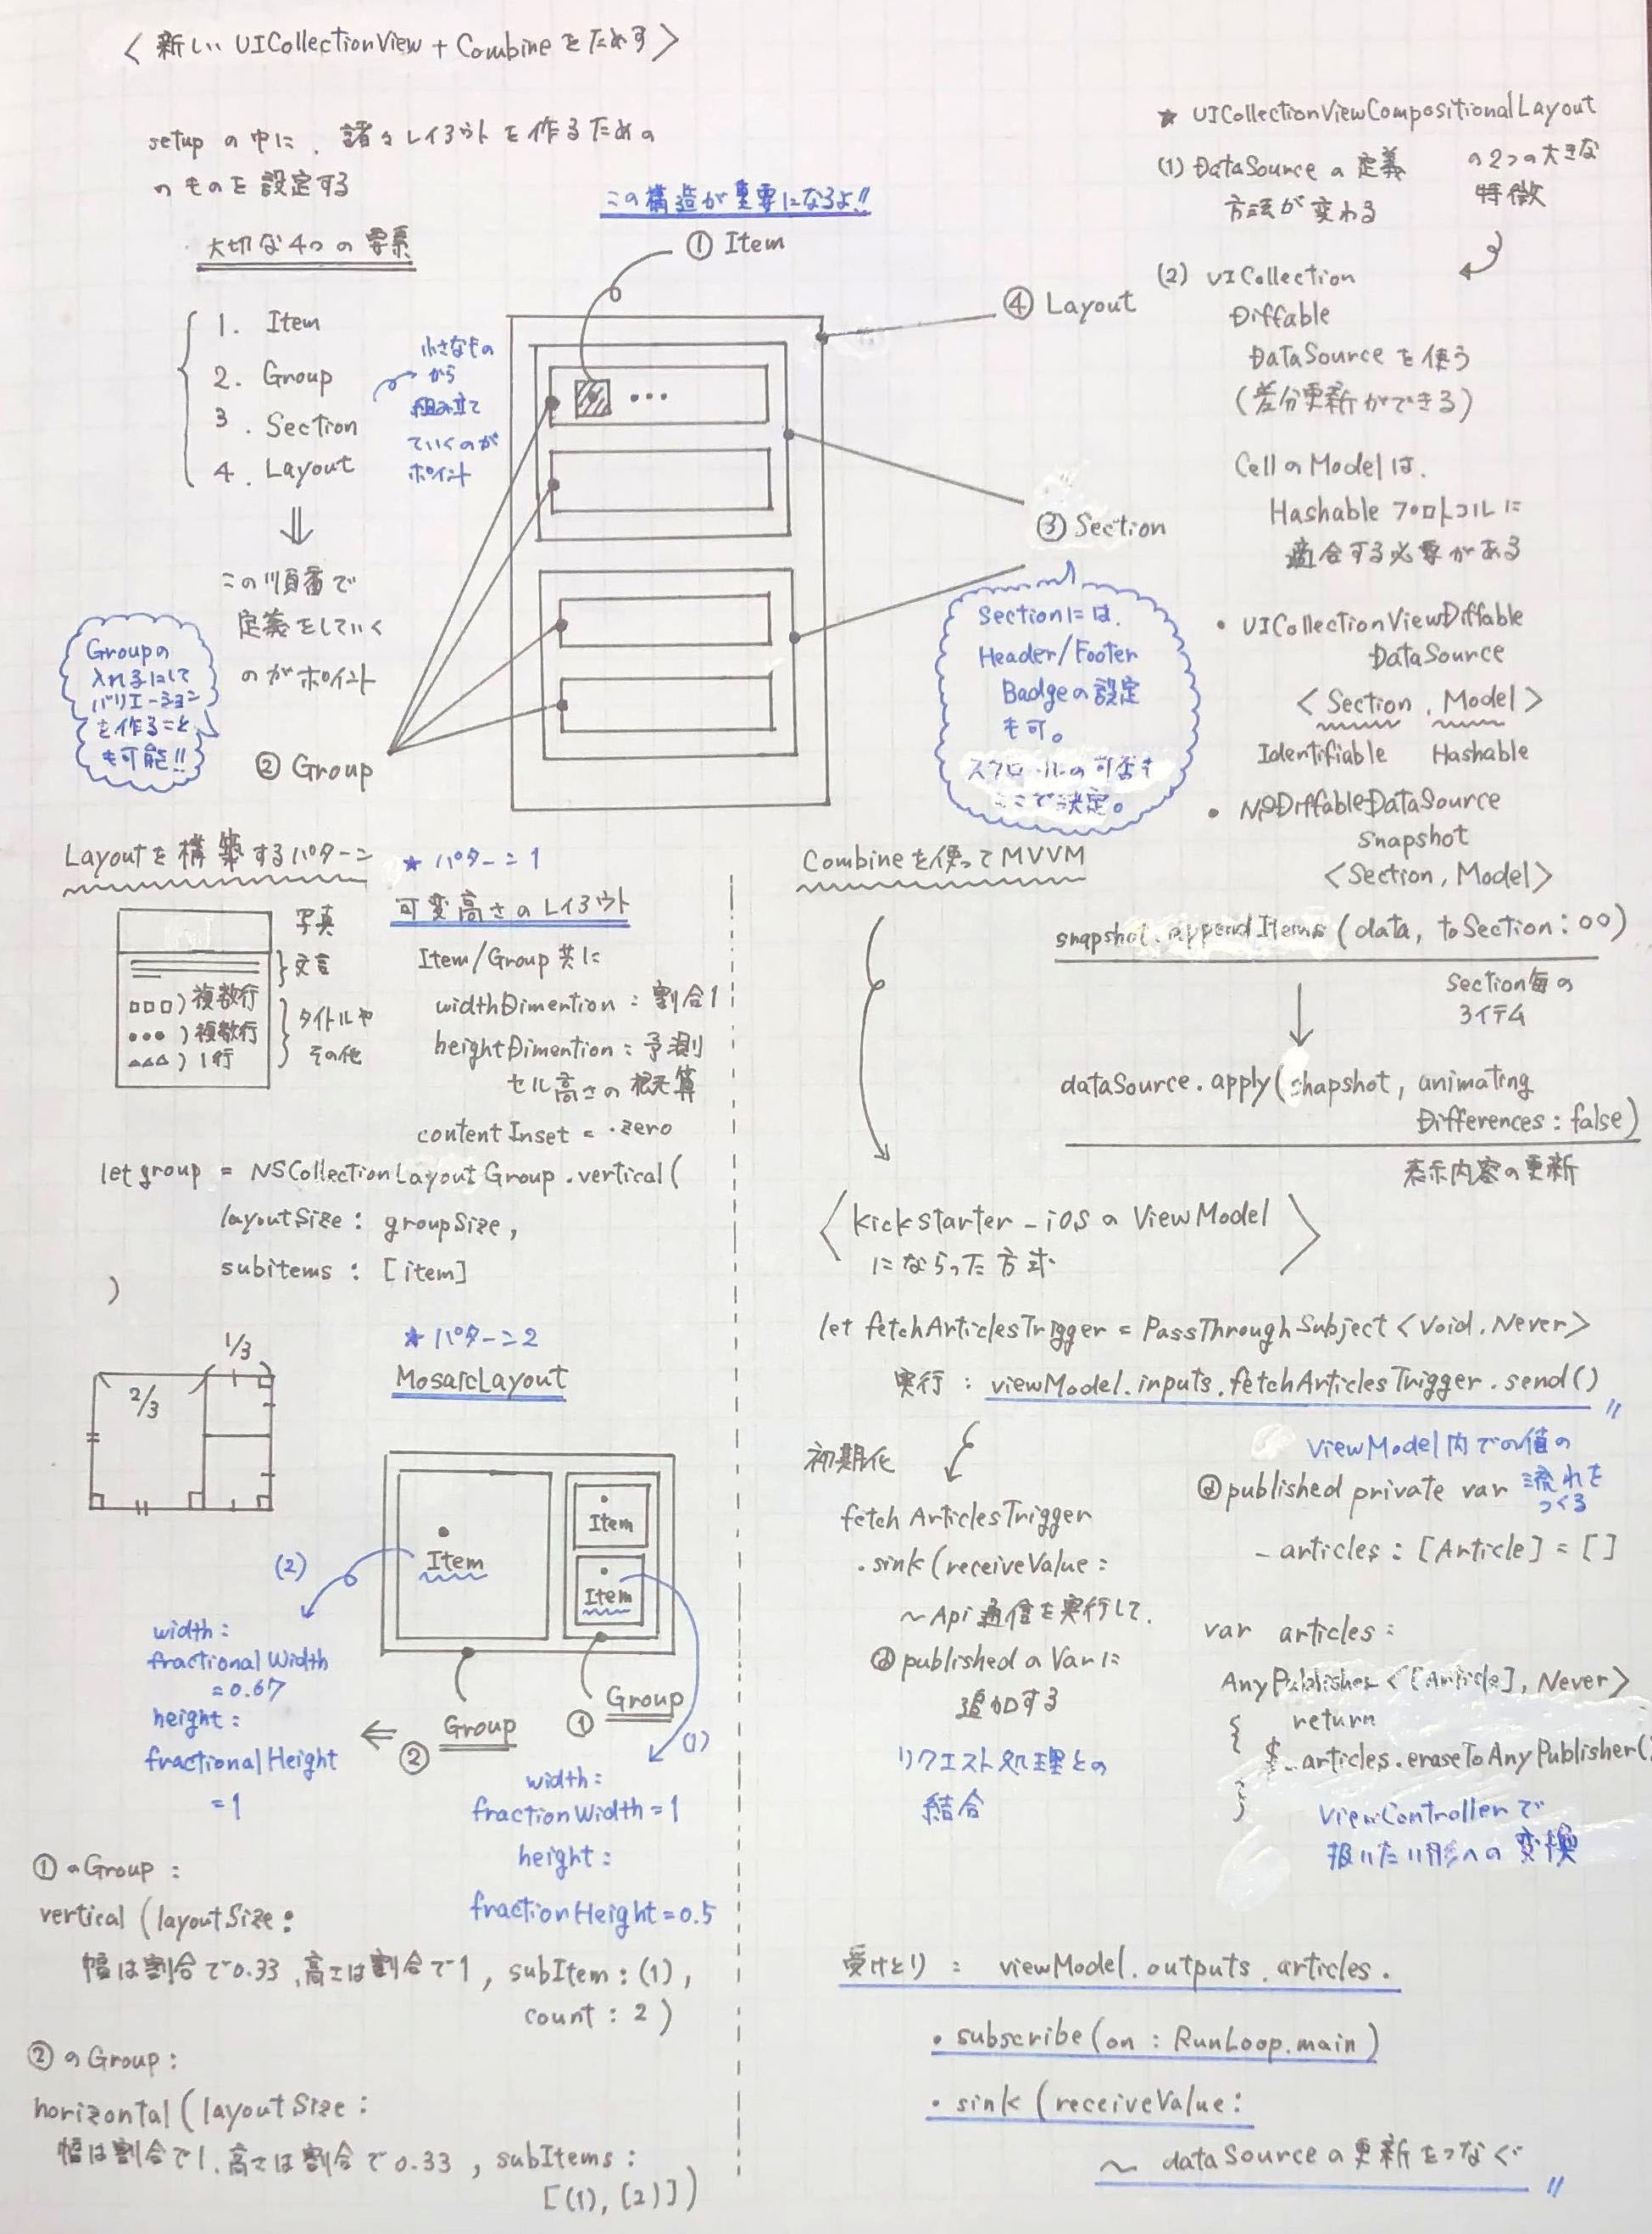 〈 新しい UICollectionView + Combine をためす 〉
setup の中に、諸々レイアウトを作るための
のものを設定する
大切な4つの要素
1. Item
2. Group
3. Section
4. Layout
小さなもの
から
組み立て
ていくのが
ポイント
⇓
この順番で
定義をしていく
のがポイント
Groupの
入れ子にして
バリエーション
を作ること
も可能!!
この構造が重要になるよ!!
① Item
④ Layout
③ Section
② Group
Sectionには、
Header/Footer
Badgeの設定
も可。
スクロールの可否も
ここで決定。
★ UICollectionViewCompositionalLayout
の2つの大きな
特徴
(1) DataSource の定義
方法が変わる
(2) UICollection
Diffable
DataSource を使う
(差分更新ができる)
CellのModelは、
Hashable プロトコルに
適合する必要がある
• UICollectionViewDiffable
DataSource
<Section, Model>
Identifiable Hashable
• NSDiffableDataSource
Snapshot
<Section, Model>
snapshot.appendItems(data, toSection:○○)
Section毎の
3イテム
↓
dataSource.apply(snapshot, animating
Differences: false)
表示内容の更新
Layoutを構築するパターン
写真
文言
□□□)複数行
•••)複数行
△△△)1行
タイトルや
その他
★ パターン1
可変高さのレイアウト
Item/Group共に
widthDimention : 割合1
heightDimention : 予測
セル高さの概算
contentInset = .zero
let group = NSCollectionLayoutGroup.vertical(
layoutSize: groupSize,
subitems: [item]
)
★ パターン2
MosaicLayout
1/3
2/3
Item
Item
Item
(2)
width:
fractionalWidth
=0.67
height:
fractionalHeight
=1
⇐ ② Group
① Group
(1)
width:
fractionWidth=1
height:
fractionHeight=0.5
①のGroup:
vertical(layoutSize:
幅は割合で0.33、高さは割合で1, subItem:(1),
count:2)
②のGroup:
horizontal(layoutSize:
幅は割合で1、高さは割合で0.33, subItems:
[(1),(2)])
Combineを使ってMVVM
〈 kickstarter-iOSのViewModel
にならった方式 〉
let fetchArticlesTrigger = PassThroughSubject<Void, Never>
実行: viewModel.inputs.fetchArticlesTrigger.send()
初期化
fetchArticlesTrigger
.sink(receiveValue:
～Api通信を実行して、
@publishedのVarに
追加する
リクエスト処理との
結合
ViewModel内での値の
流れを
つくる
@published private var
_articles: [Article] = []
var articles:
AnyPublisher<[Article], Never>
{ return
$_articles.eraseToAnyPublisher()
}
ViewControllerで
扱いたい形への変換
受けとり: viewModel.outputs.articles.
.subscribe(on: RunLoop.main)
.sink(receiveValue:
～ dataSourceの更新をつなぐ